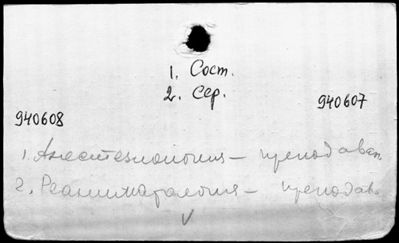 1. Сост.
2. Сер.
940607
940608
1. Анестезиология — преподаван.
2. Реаниматология — преподав.
V